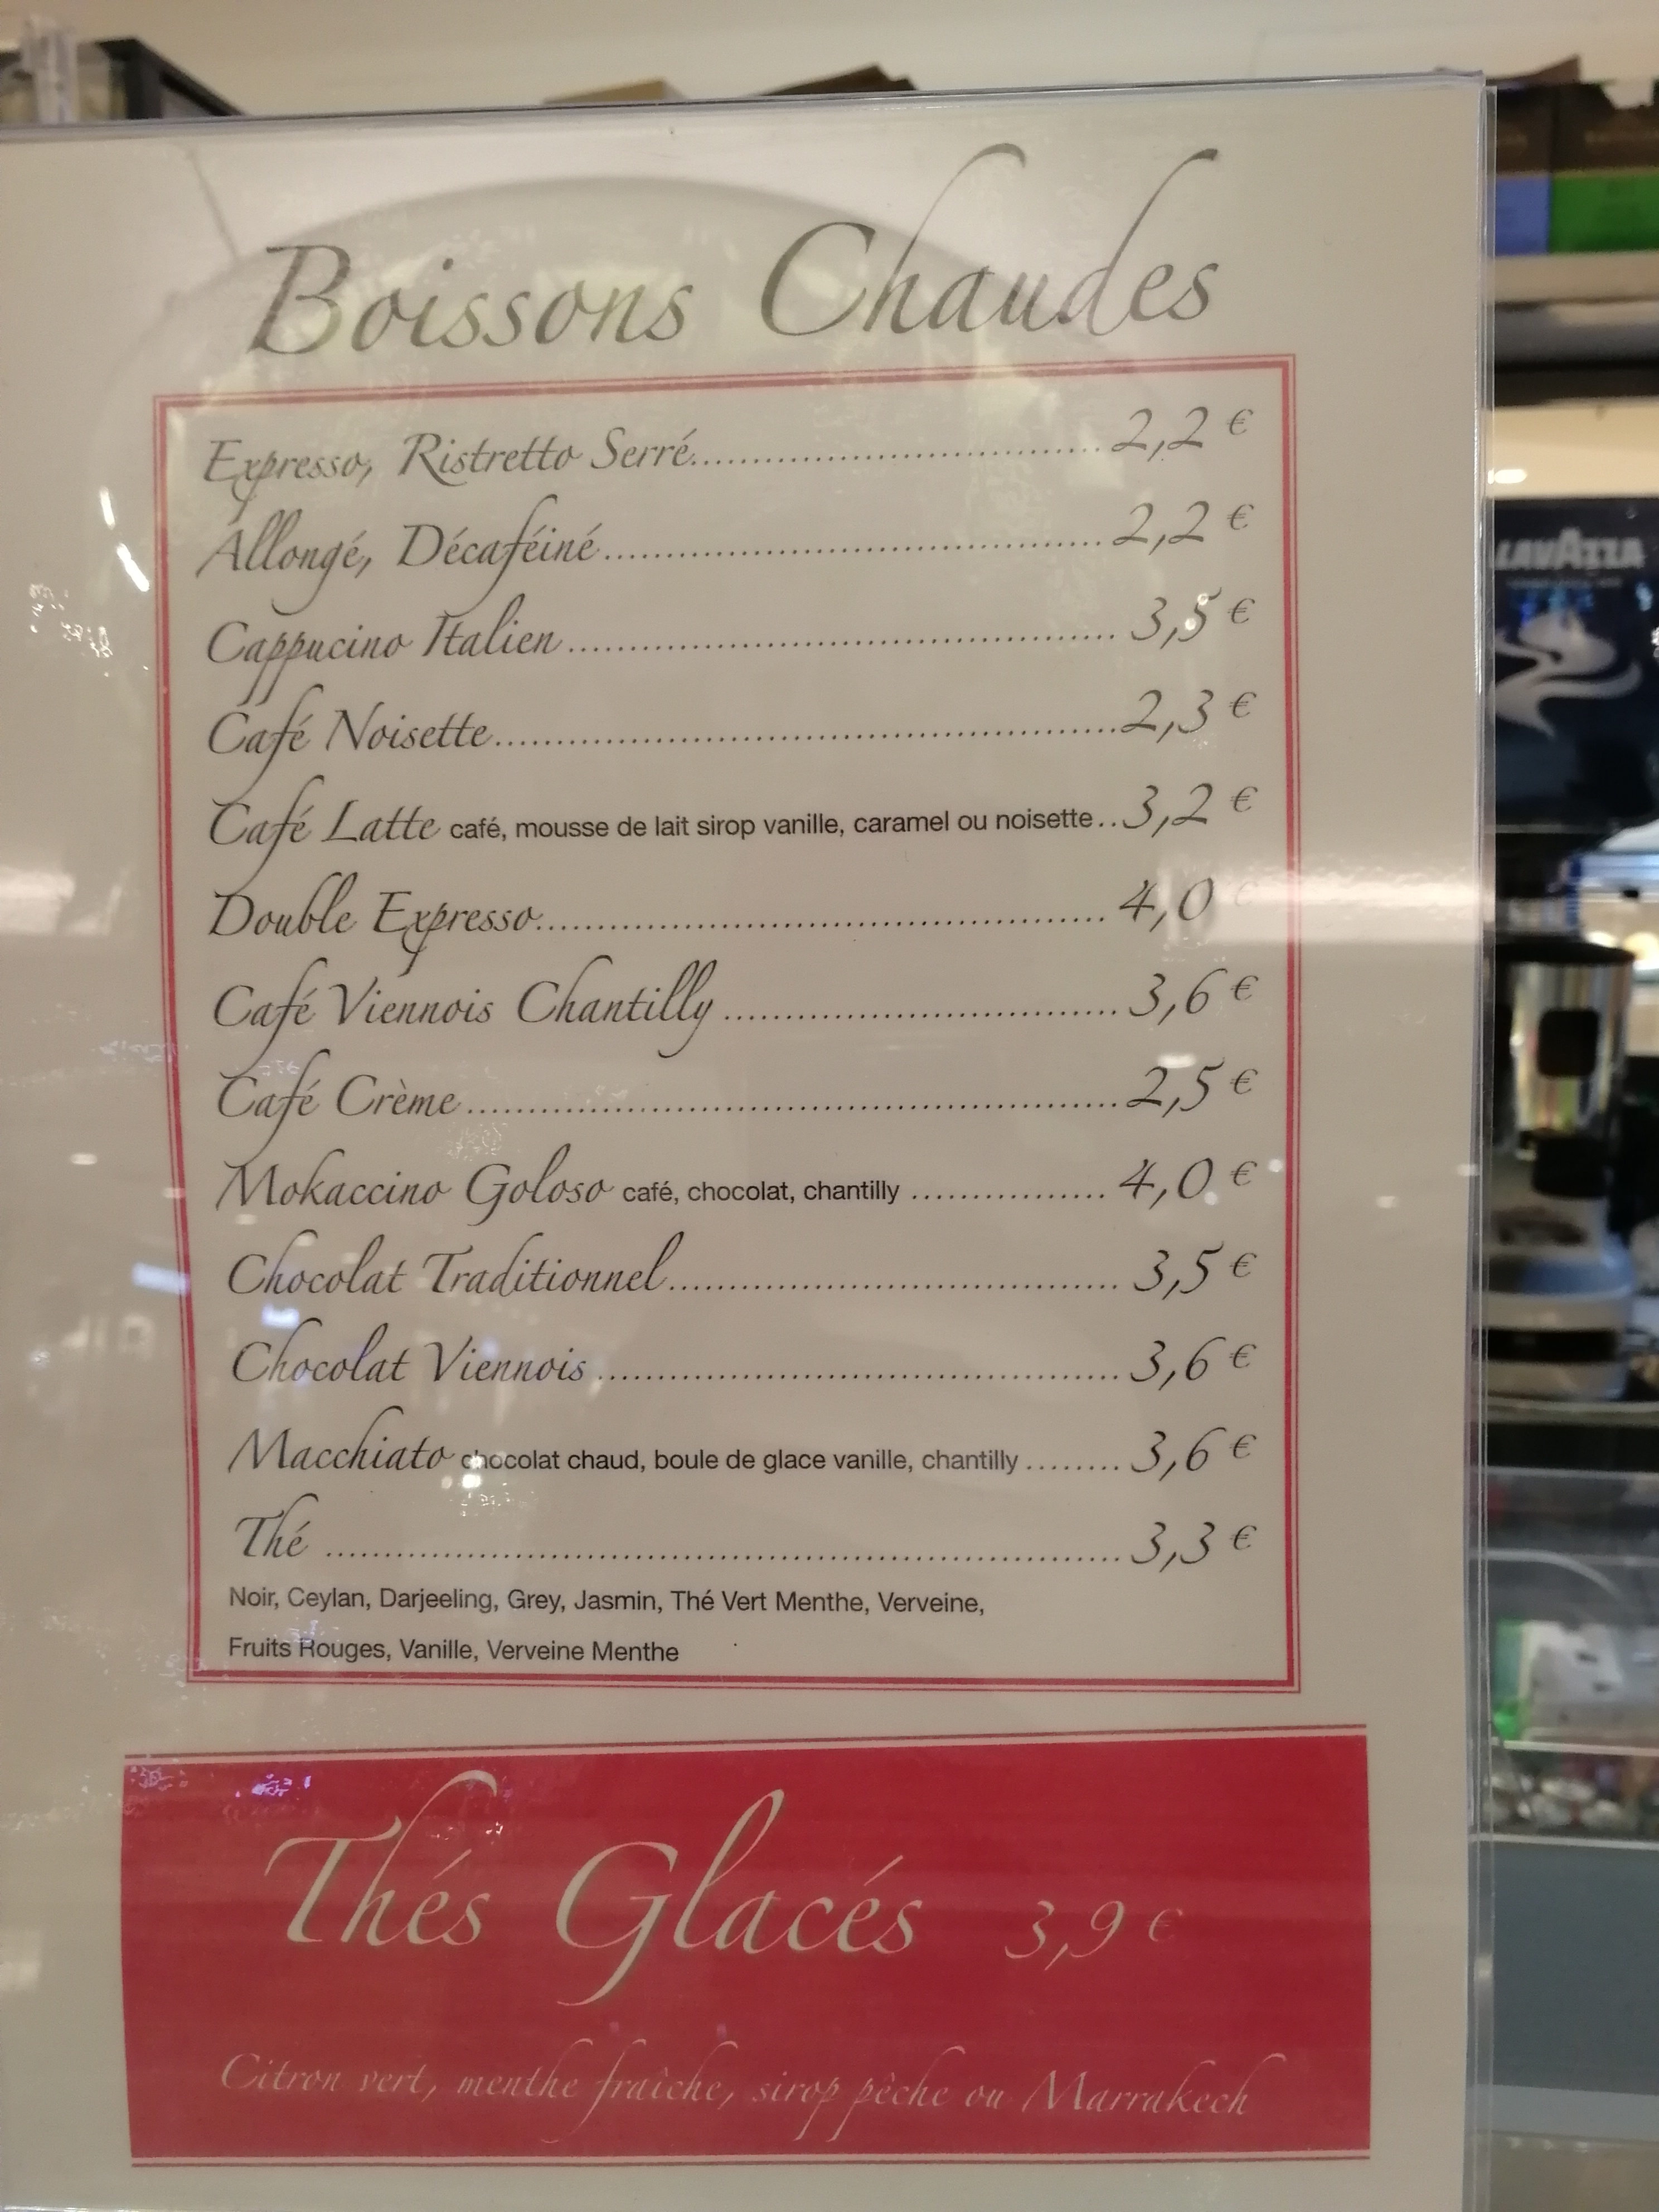 Boissons Chaudes
Expresso, Ristretto Serré.......2,2 €
Allongé, Décaféiné.......2,2 €
Cappucino Italien.......3,5 €
Café Noisette.......2,3 €
Café Latte café, mousse de lait sirop vanille, caramel ou noisette..3,2 €
Double Expresso.......4,0 €
Café Viennois Chantilly.......3,6 €
Café Crème.......2,5 €
Mokaccino Goloso café, chocolat, chantilly.......4,0 €
Chocolat Traditionnel.......3,5 €
Chocolat Viennois.......3,6 €
Macchiato chocolat chaud, boule de glace vanille, chantilly.......3,6 €
Thé.......3,3 €
Noir, Ceylan, Darjeeling, Grey, Jasmin, Thé Vert Menthe, Verveine,
Fruits Rouges, Vanille, Verveine Menthe
Thés Glacés 3,9 €
Citron vert, menthe fraîche, sirop pêche ou Marrakech
LAVAZZA